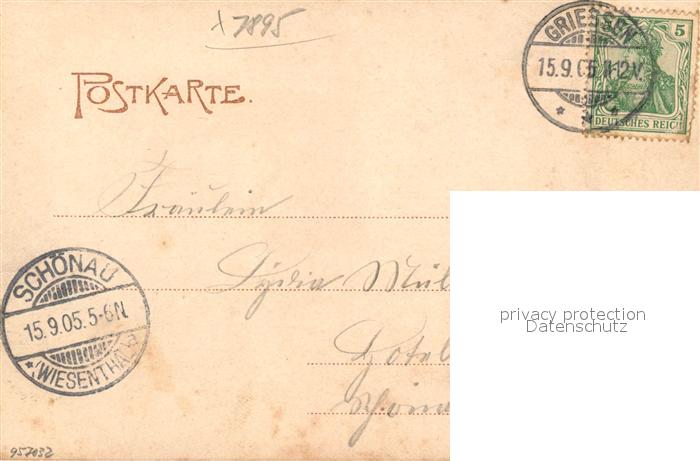 x 7895
GRIESSEN
15.9.05 11-12V.
5
DEUTSCHES REICH
POSTKARTE.
Fräulein
Lydia Mül
Hotel
SCHÖNAU
15.9.05.5-6N.
(WIESENTHAL)
privacy protection
Datenschutz
957032